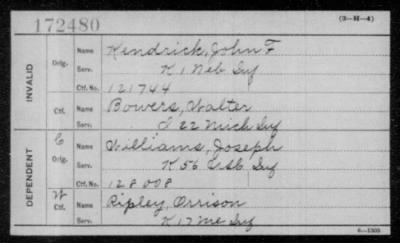 172480
(3-H-4)
INVALID
Orig.
Name Kendrick, John F
Serv. K 1 Neb Inf
Ctf. No. 121744
Ctf.
Name Bowers, Walter
Serv. I 22 Mich Inf
DEPENDENT
C
Orig.
Name Williams, Joseph
Serv. K 56 Inf
Ctf. No. 128008
W
Ctf.
Name Ripley, Orrison
Serv. K 17 Me Inf
6-1303